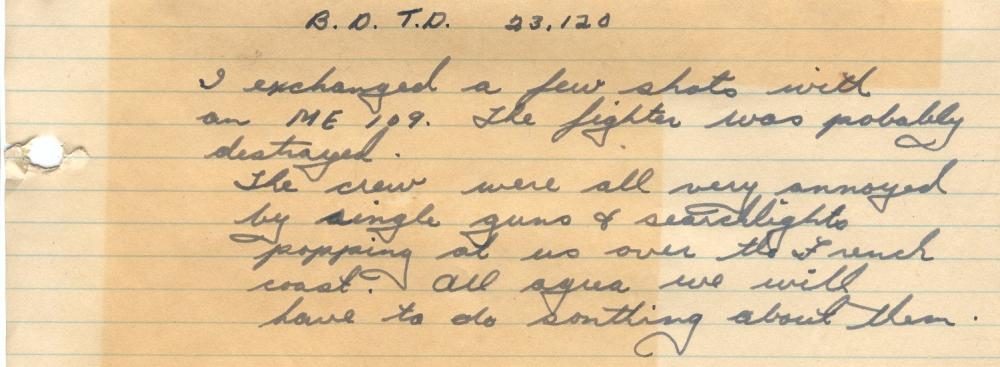 B. D. T.D. 23,120
I exchanged a few shots with
an ME 109. The fighter was pobably
destrayed.
The crew were all very annoyed
by single guns & searchlights
popping at us over the French
coast. All agrea we will
have to do sonthing about them.